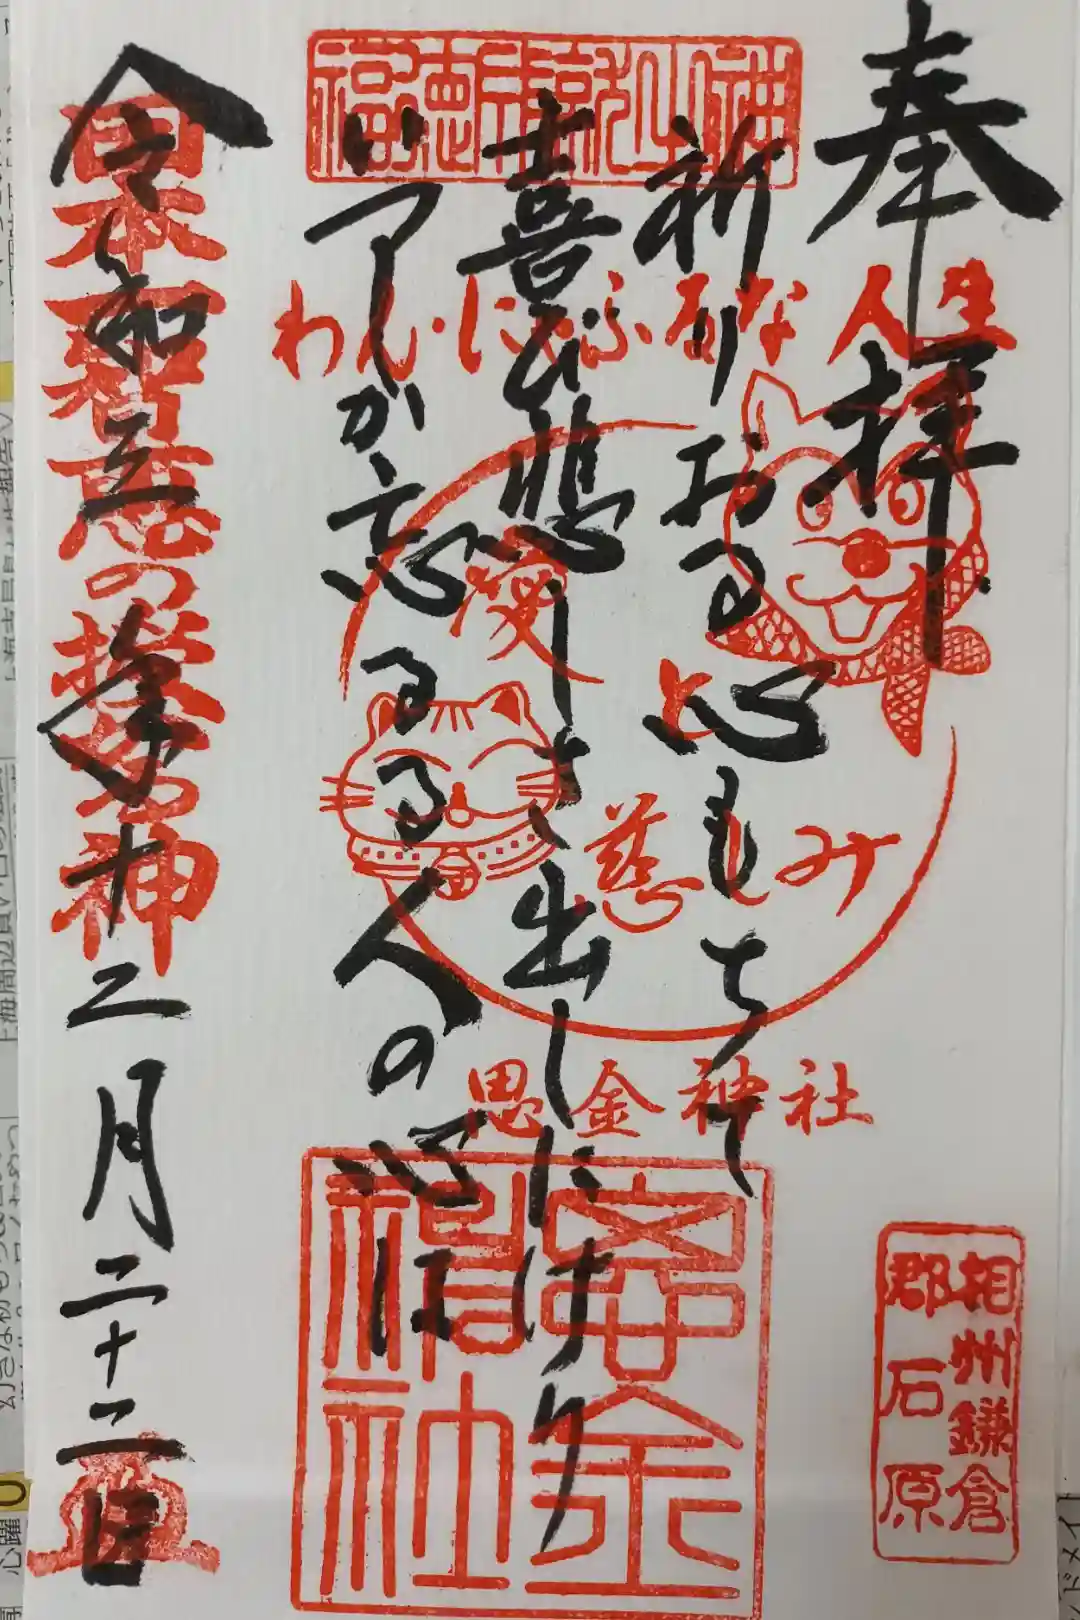 奉拝
祈りおる心もちて
喜び悲しさ出しにけり
いつしか忘るる人の心は
令和三年十二月二十二日
わん・にゃふるな人生
愛と慈しみ
思金神社
思金
神社
相州鎌倉
郡石原